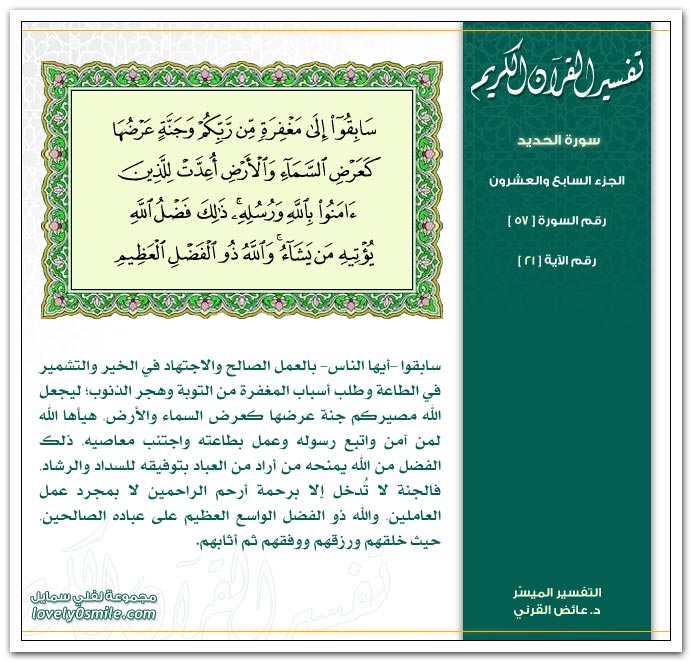 تفسير القرآن الكريم
سورة الحديد
الجزء السابع والعشرون
رقم السورة [ ٥٧ ]
رقم الآية [ ٢١ ]
سَابِقُوٓا۟ إِلَىٰ مَغْفِرَةٍ مِّن رَّبِّكُمْ وَجَنَّةٍ عَرْضُهَا
كَعَرْضِ ٱلسَّمَآءِ وَٱلْأَرْضِ أُعِدَّتْ لِلَّذِينَ
ءَامَنُوا۟ بِٱللَّهِ وَرُسُلِهِۦ ۚ ذَٰلِكَ فَضْلُ ٱللَّهِ
يُؤْتِيهِ مَن يَشَآءُ ۚ وَٱللَّهُ ذُو ٱلْفَضْلِ ٱلْعَظِيمِ
سابقوا -أيها الناس- بالعمل الصالح والاجتهاد في الخير والتشمير
في الطاعة وطلب أسباب المغفرة من التوبة وهجر الذنوب؛ ليجعل
الله مصيركم جنة عرضها كعرض السماء والأرض، هيأها الله
لمن آمن واتبع رسوله وعمل بطاعته واجتنب معاصيه، ذلك
الفضل من الله يمنحه من أراد من العباد بتوفيقه للسداد والرشاد،
فالجنة لا تُدخل إلا برحمة أرحم الراحمين لا بمجرد عمل
العاملين، والله ذو الفضل الواسع العظيم على عباده الصالحين،
حيث خلقهم ورزقهم ووفقهم ثم أثابهم.
تفسير القرآن الكريم
مجموعة لفلي سمايل
lovely0smile.com
التفسير الميسّر
د. عائض القرني